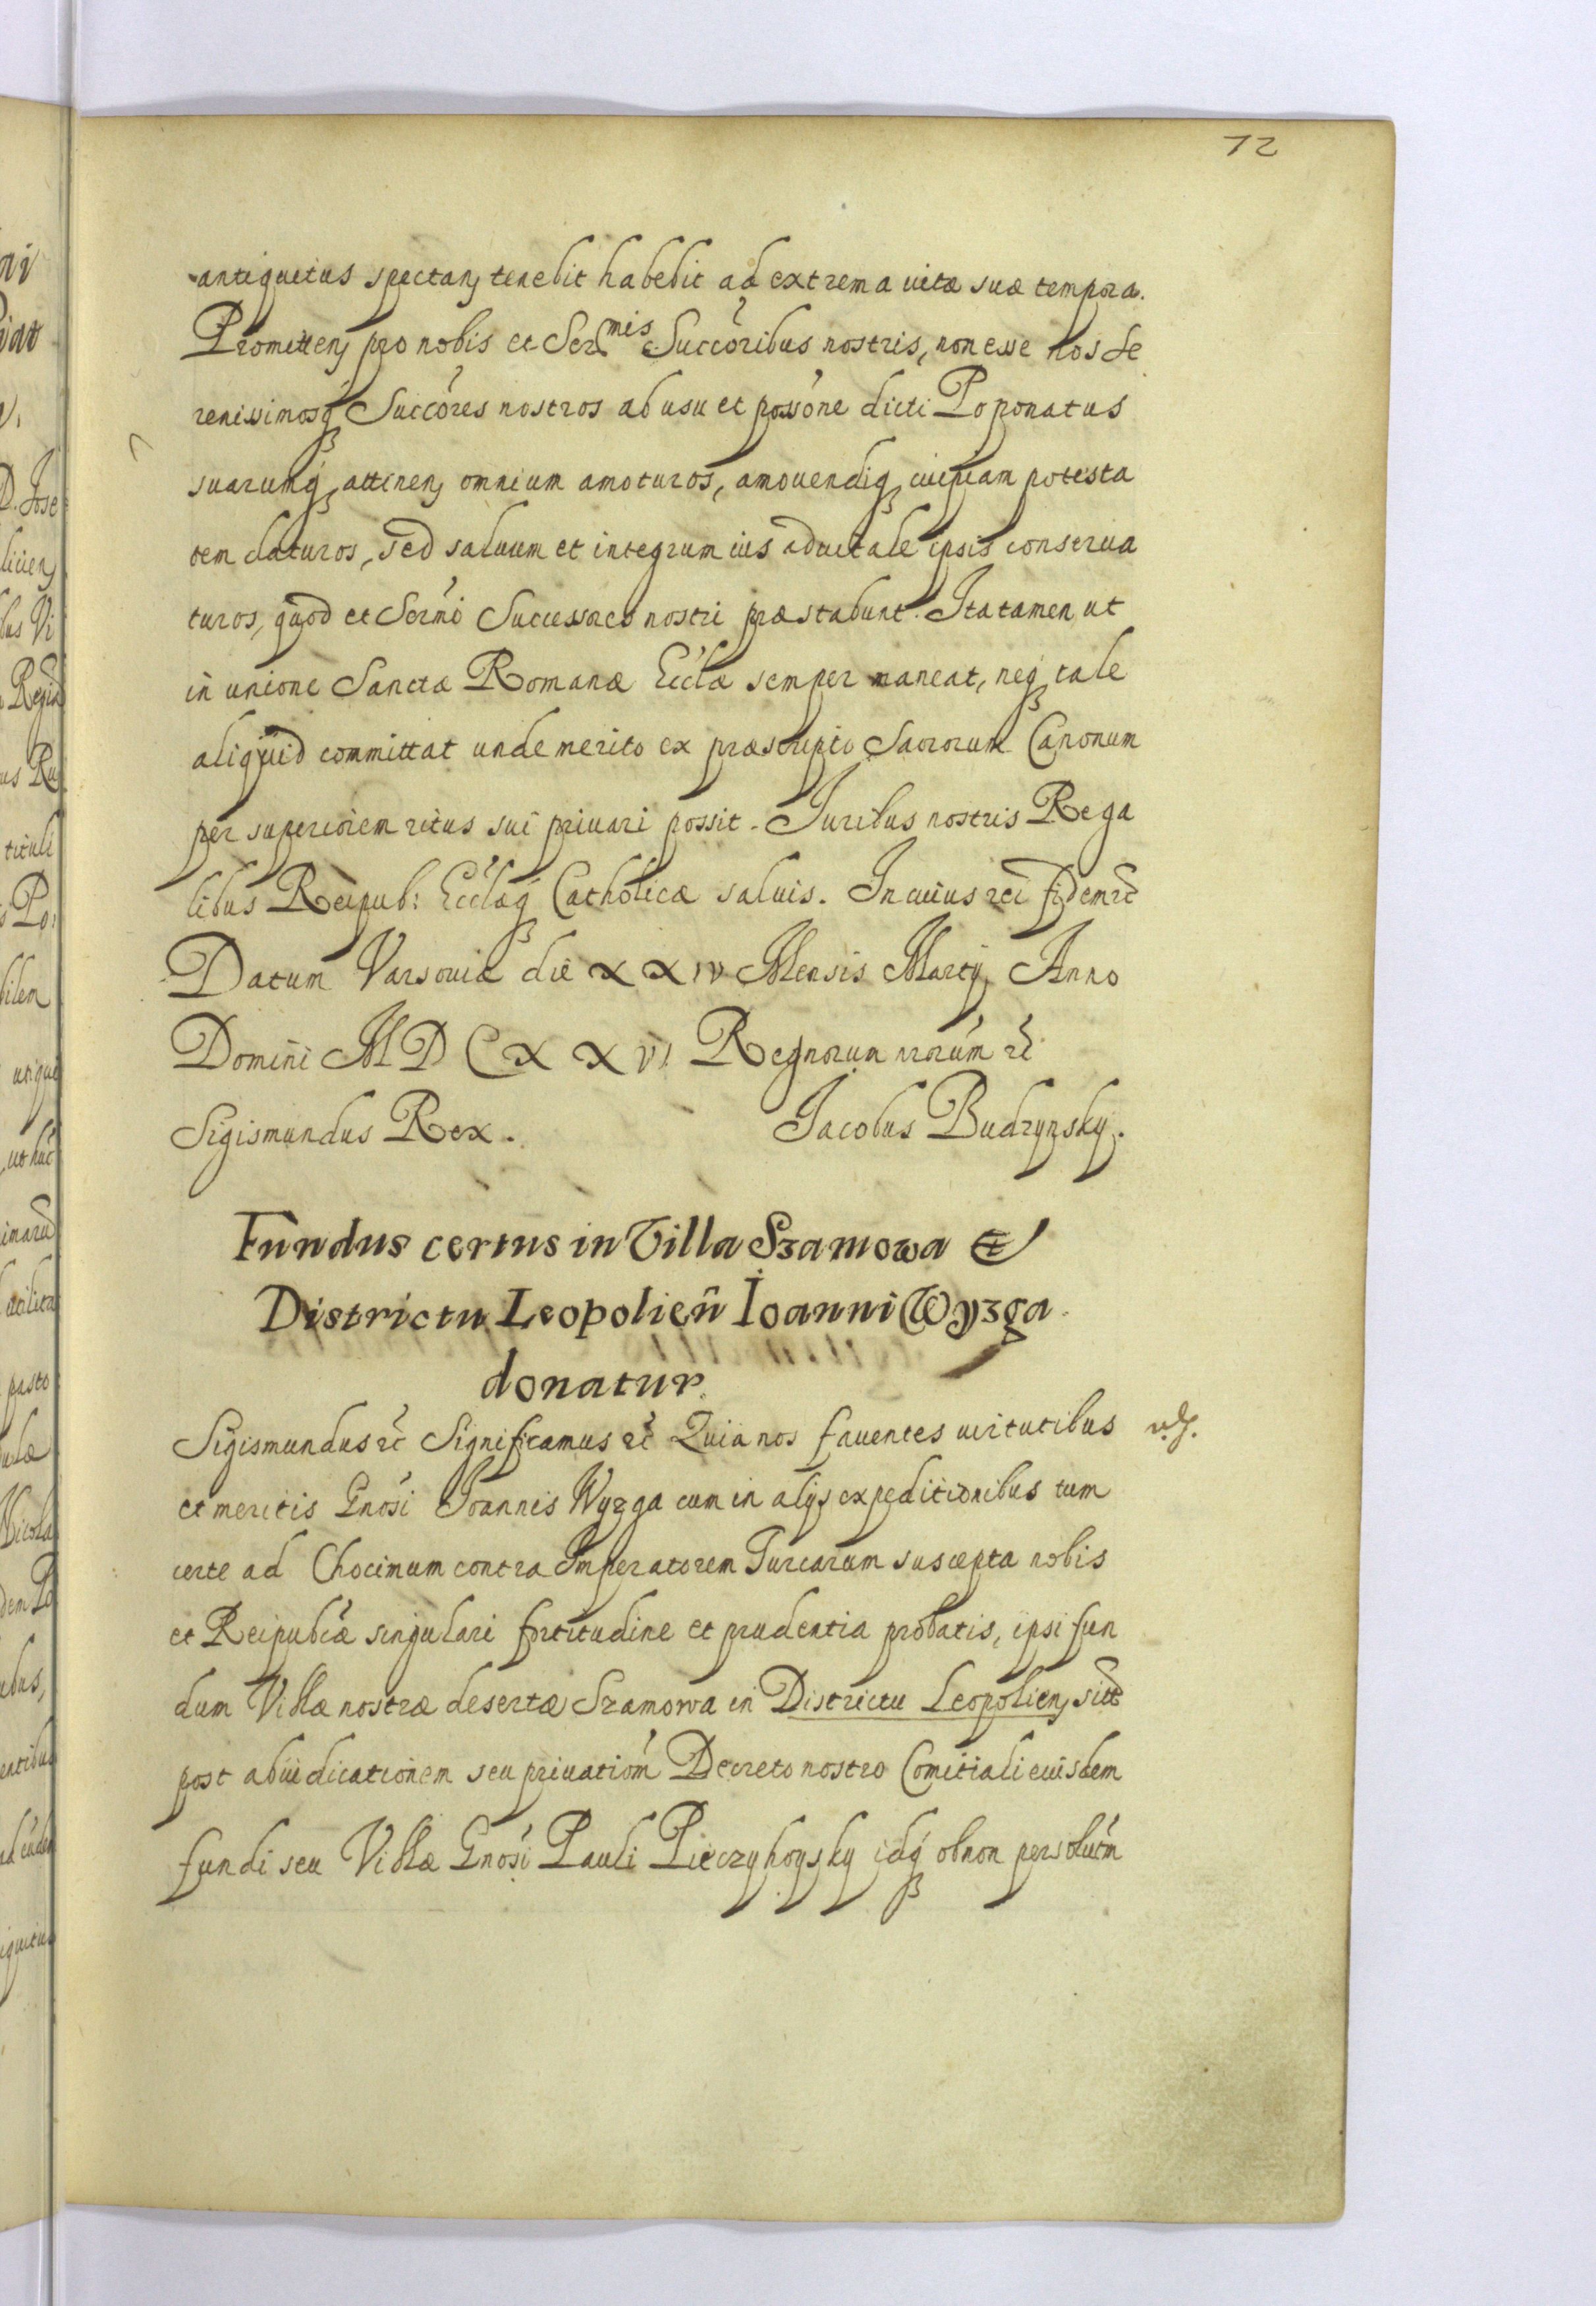 72
antiquitus spectans tenebit habebit ad extrema vitæ suæ tempora.
Promitten pro nobis et Sermis Succoribus nostris, non esse nos Se
renissimosq Succores nostros ab usu et possone dicti Poponatus
suarumq attinen omnium amoturos, amouendiq cuipiam potesta
tem daturos, sed saluum et integrum ius aduitale ipsis conserua
turos, quod et Sermi Successores nostri præstabunt. Ita tamen ut
in unione Sanctæ Romanæ Ecclæ semper maneat, neq tale
aliquid committat unde merito ex præscripto Sacrorum Canonum
per superiorem ritus sui priuari possit. Iuribus nostris Rega
libus Reipub: Ecclæq Catholicæ saluis. In cuius rei fidem etc
Datum Varsouiæ die XXIV Mensis Martij Anno
Domini MDCXXVI Regnorum nrorum etc
Sigismundus Rex. Jacobus Budzynsky.
Fundus certus in Villa Szamowa et
Districtu Leopolien Ioanni Wyzga
donatur.
Sigismundus etc Significamus etc Quia nos fauentes uirtutibus
et meritis Gnosi Joannis Wyzga cum in alijs expeditionibus tum
certe ad Chocimum contra Imperatorem Turcarum suscepta nobis
et Reipubcæ singulari fortitudine et prudentia probatis, ipsi fun
dum Villæ nostræ desertæ Szamowa in Districtu Leopolien sitt
post abiudicationem seu priuatiom Decreto nostro Comitiali eiusdem
fundi seu Villæ Gnosi Pauli idq ob non persolutm